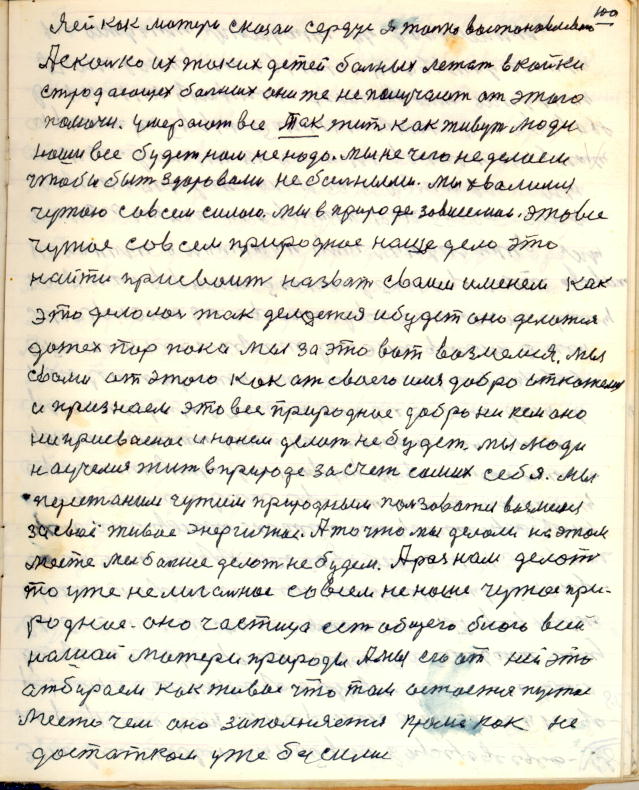 100
Я ей как матери сказал сердце я только востановливаю
А сколко их таких детей болных лежат в койки
стродающех болних они же не получают от этого
помочи. умерают все так жит как живут люди
наши все будет нам не надо. мы не чего не делаем
чтобы быт здоровами не болными. мы хвалимся
чужою совсем силою. мы в природе зависемы. это все
чужое совсем природное наше дело это
найти присвоит назват своим именем как
это делолос так делоется и будет оно делотся
до тех пор пока мы за это вот возмемся. мы
свами от этого как от своего имя добро откожемся
и признаем это все природное добро ни кем оно
ни присваеное и ноким делот не будет. мы люди
научемся жит в природе за счет самих себя. мы
перестаним чужим природным ползоватся возмемся
за своё живое энергичное. А то что мы делали на этом
месте мы болше делот не будем. А раз нам делот
то уже не мысемое совсем не наше чужое при-
родное. оно частица ест общего бюго всей
нашай матери природы А мы его от ней это
атбираем как живое что там остается пустое
место чем оно заполняется кроме как не
достатком уже бысили